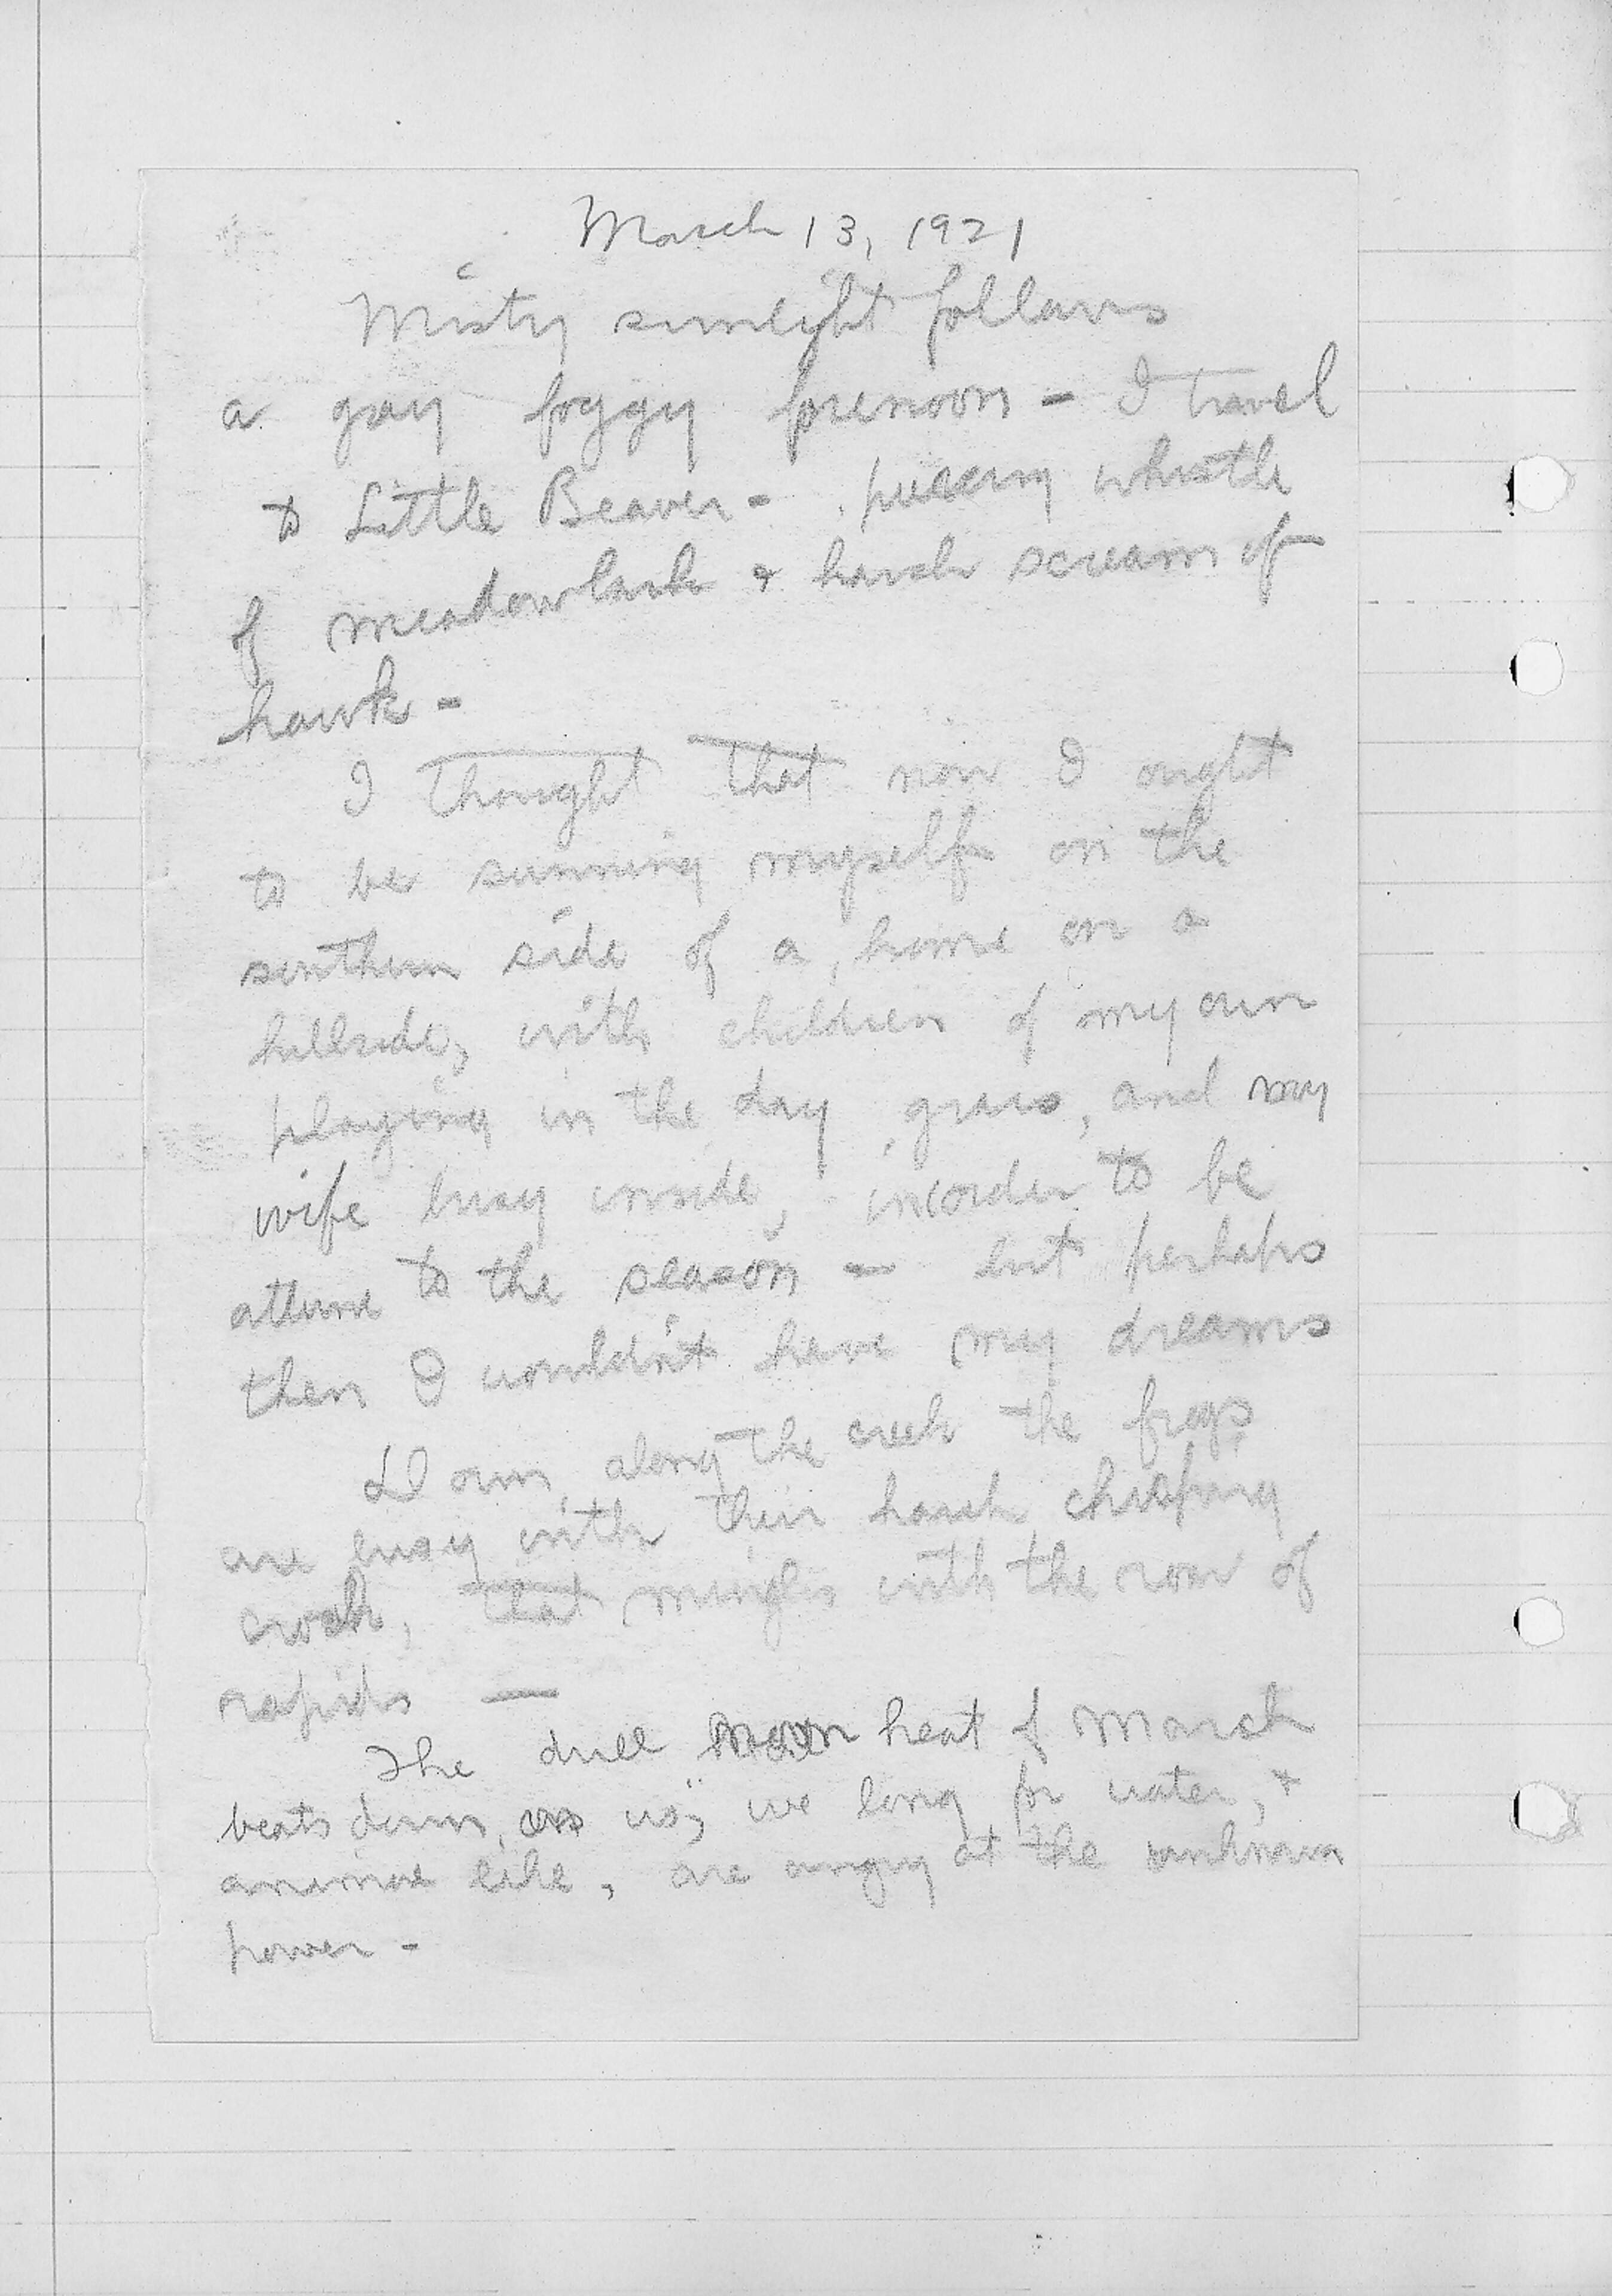 March 13, 1921
Misty sunlight follows
a gray foggy forenoon - I travel
to Little Beaver - piercing whistle
of meadowlark & harsh scream of
hawk -
I thought that now I ought
to be sunning myself on the
southern side of a home on a
hillside, with children of my own
playing in the dry grass, and my
wife busy inside, in order to be
attune to the season - but perhaps
then I wouldn't have my dreams
Down along the creek the frogs
are busy with their harsh chirping
croak, that mingles with the roar of
rapids —
The dull noon heat of March
beats down on us; we long for water, &
animal like, are angry at the unknown
power -